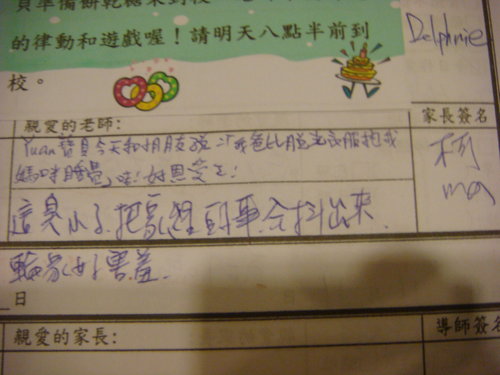 準備餅乾糖果到校
的律動和遊戲喔！請明天八點半前到
校。
Delphnie
親愛的老師:
家長簽名
Yuan寶貝今天和朋友說:我爸比脫光衣服抱我
媽咪睡覺,唉!好恩愛!
柯
ma
這臭小子把家裡的事全抖出來
好害羞.
日
親愛的家長:
導師簽名